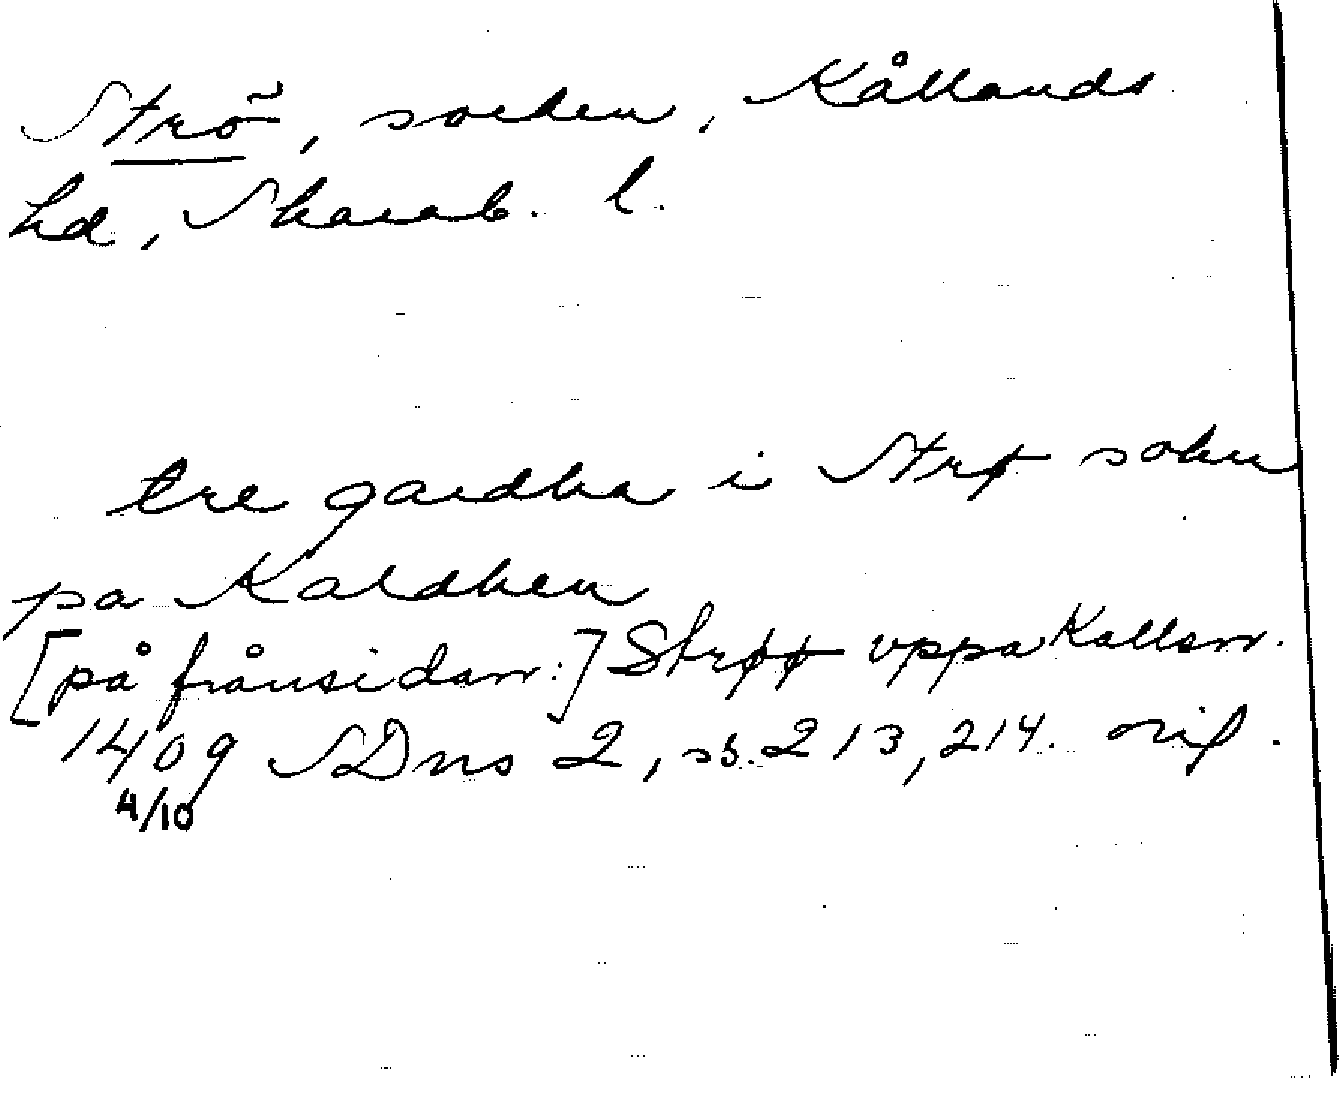 Strö, socken, Kållands
hd, Skarab. l.
tre gardha i Strø sokn
pa Kaldhen
[på frånsidan:] Strøø uppa Kallan.
1409 SDns 2, ss. 213, 214. orig.
4/10